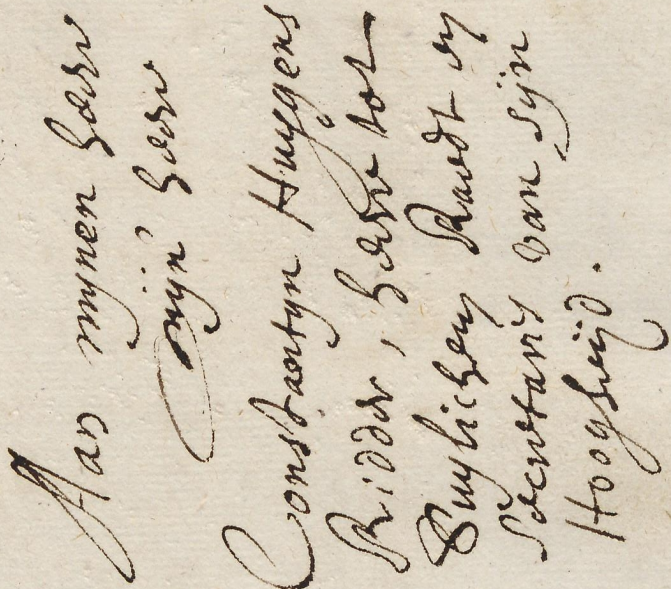 Aan mynen heere
mijn heere
Constantyn Huygens
Ridder, heere tot
Suylichem Raedt en
Secretaris van Sijn
Hoogheijd.